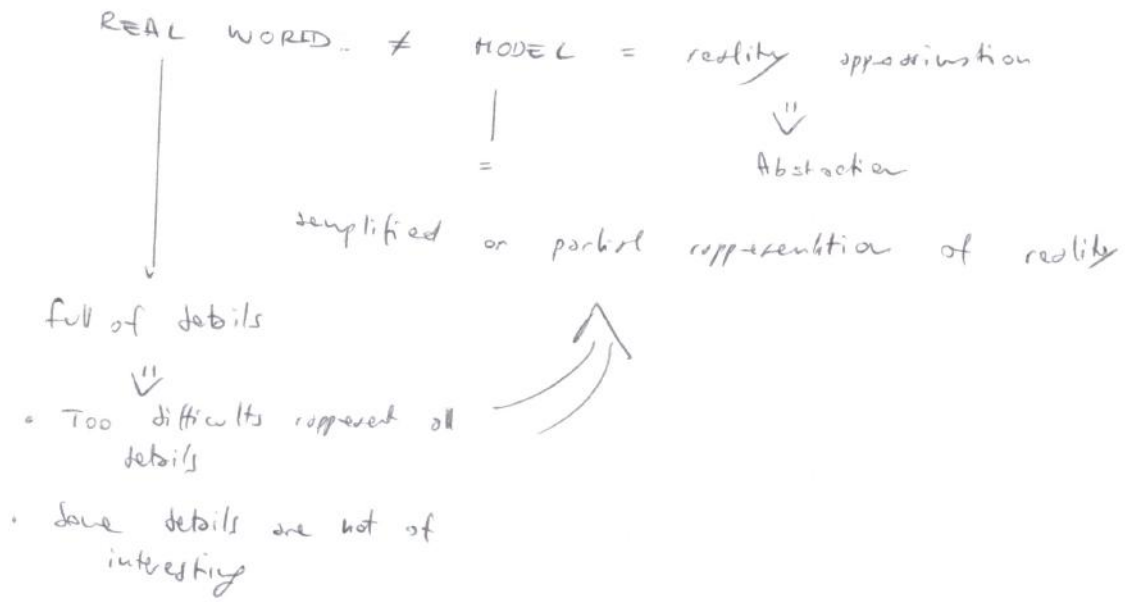 REAL WORLD.. ≠ MODEL = reality approximation
=
Abstraction
semplified or partial rappresentation of reality
full of details
• Too difficults rappresent all
details
• Some details are not of
interesting